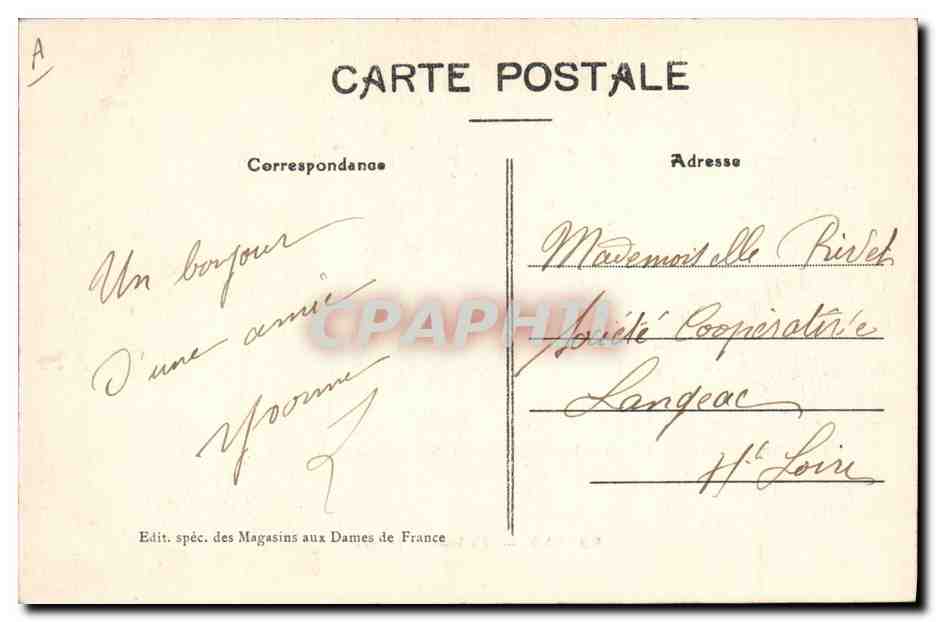 A
CARTE POSTALE
Correspondance
Adresse
Un bonjour
d'une amie
Yvonne
Mademoiselle Rivet
Société Coopérative
Langeac
Hte Loire
CPAPHIL
Edit. spéc. des Magasins aux Dames de France